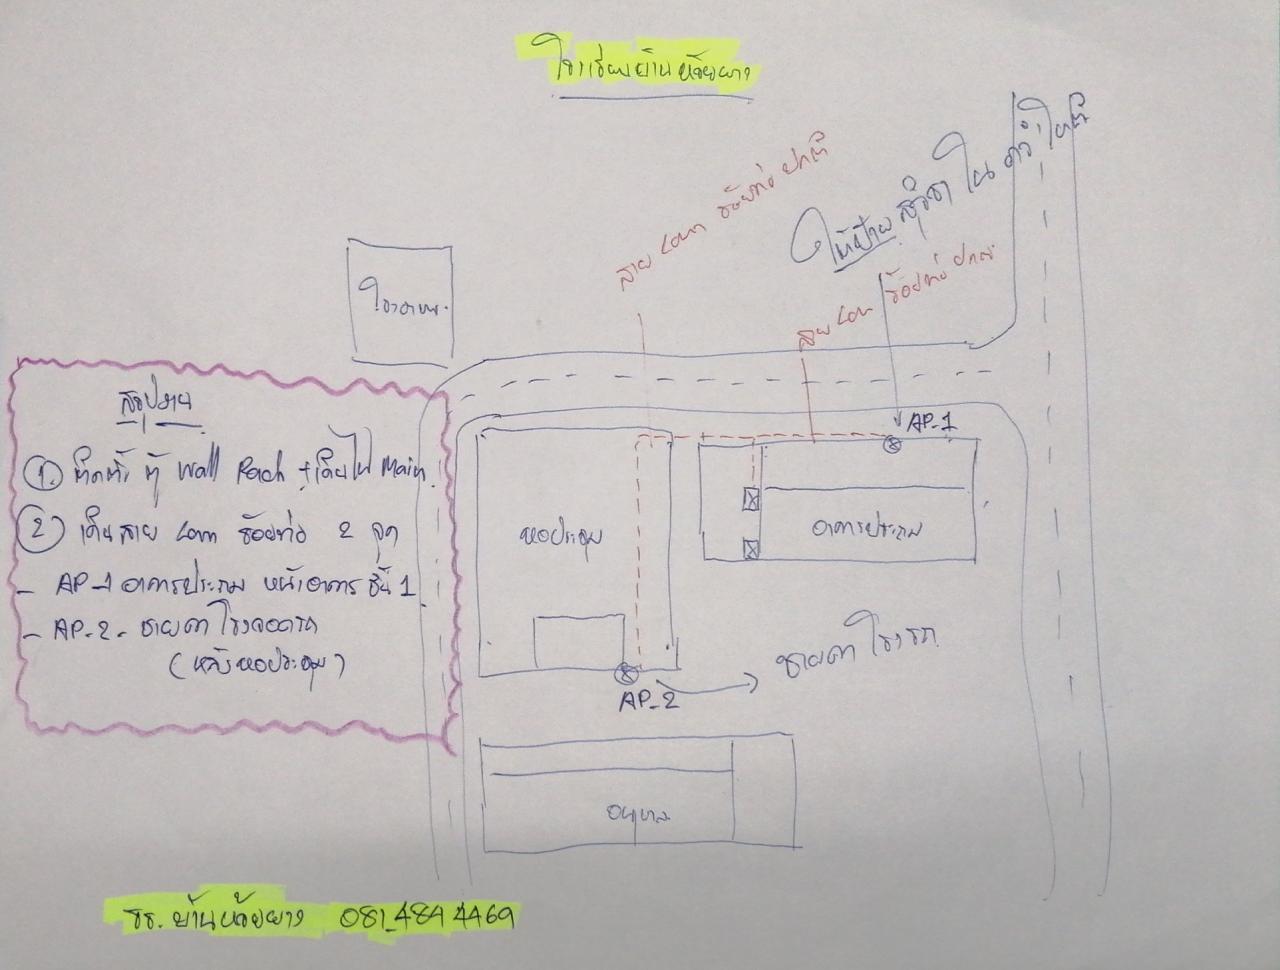 โรงเรียนบ้านห้วยยาง
สาย Lan ร้อยท่อ ปกติ
ให้ป้าย
สาย Lan ร้อยท่อ ปกติ
โรงอาหาร
AP-1
สรุปงาน
① ติดตั้ง ตู้ Wall Rack + เดินไฟ Main
② เดินสาย Lan ร้อยท่อ 2 จุด
- AP-1 อาคารประถม หน้าอาคาร ชั้น 1
- AP-2 - ชายคา โรงจอดรถ
(หลังหอประชุม)
หอประชุม
อาคารประถม
AP-2
ชายคา โรงรถ
อนุบาล
รร. บ้านห้วยยาง 081-484 4469